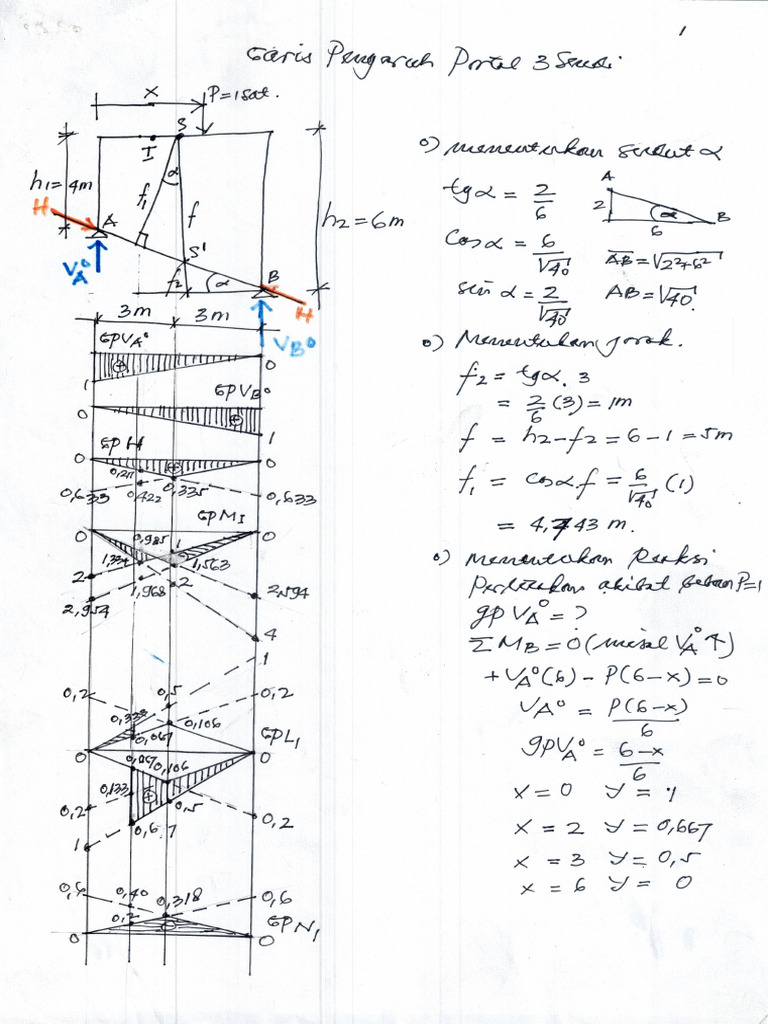 1
Garis Pengaruh Portal 3 Sendi
X
P=1 sat.
S
I
α
h1=4m
f1
f
h2=6m
H
A
VA°
S'
f2
α
B
H
3m
3m
VB°
GPVA°
⊕
0
1
GPVB°
0
⊕
1
GPH
0
⊕
0
0,211
0,335
0,633
0,422
0,633
GPMI
0
0
0,985
1
1,334
1,563
2
1,968
2
2,594
2,954
4
1
0,2
0,5
0,2
0,333
0,106
0,067
GPL1
0
0
0,067
0,106
0,133
⊕
0,5
0,2
0,2
0,67
1
0,6
0,40
0,318
0,6
0,2
GPN1
0
0
o) menentukan sudut α
tgα = 2/6
A
2
α
B
6
Cosα = 6/√40
AB=√2²+6²
sin α = 2/√40
AB=√40.
o) Menentukan jarak.
f2 = tgα. 3
= 2/6 (3) = 1m
f = h2-f2 = 6-1 = 5m
f1 = cosα.f = 6/√40 (1)
= 4,743 m.
o) menentukan Reaksi
Perletakan akibat beban P=1
gp VA° = ?
ΣMB = 0 (misal VA° ↑)
+VA°(6) - P(6-x) = 0
VA° = P(6-x)/6
gpVA° = 6-x/6
x = 0 y = 1
x = 2 y = 0,667
x = 3 y = 0,5
x = 6 y = 0